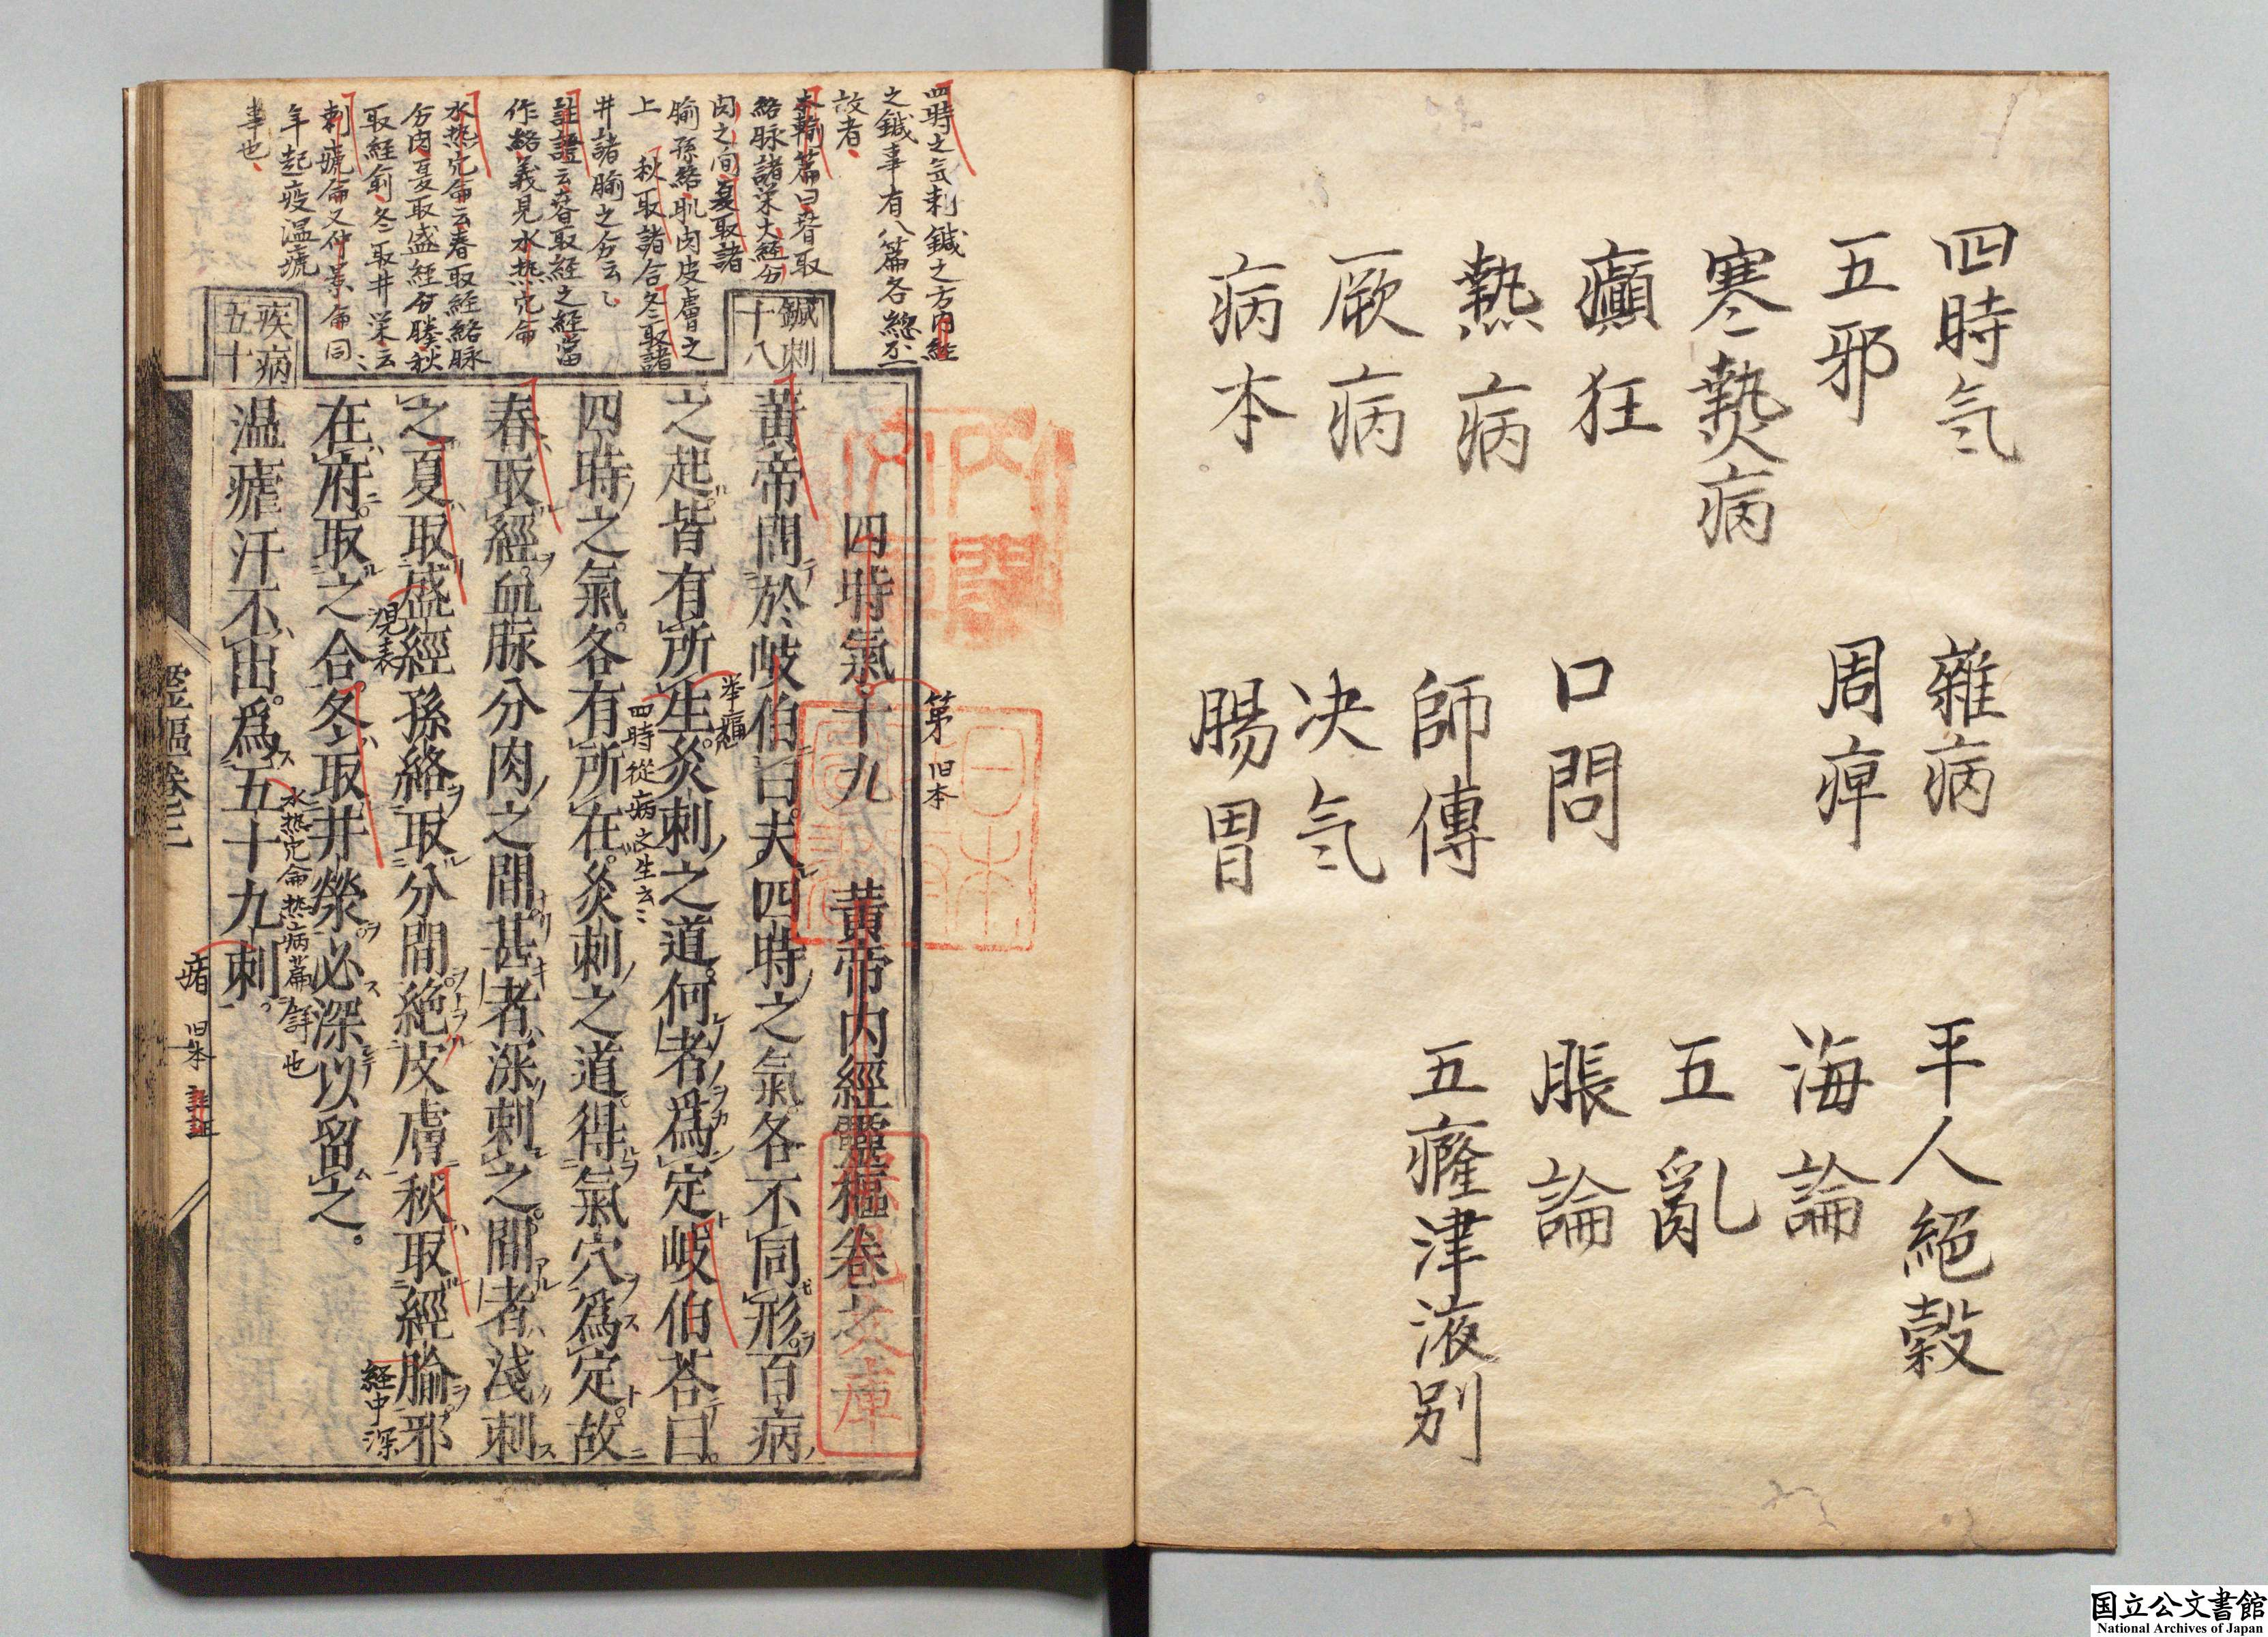 四時気
五邪
寒熱病
癲狂
熱病
厥病
病本
雜病
周痺
口問
師傳
决気
腸胃
平人絕穀
海論
五亂
脹論
五癃津液別
四時之気刺鍼之方内経
之鍼事有八篇各
故者
本輸篇曰春取
絡脉諸栄大経分
肉之間夏取諸
腧孫絡肌肉皮膚之
上　秋取諸合冬取諸
井諸腧之分云々
註證云春取経之経當
作絡義見水热穴侖
水热穴侖云春取経絡脉
分肉夏取盛経分腠秋
取経俞冬取井栄云々
刺瘧侖又仲景侖同
年起疫温瘧
事也
鍼刺
十八
疾病
五十
四時氣十九　黃帝内經靈樞卷之
第　旧本
黃帝問於岐伯曰。夫四時之氣各不同形。百病
之起皆有所生。灸刺之道。何者爲定岐伯荅曰。
四時之氣。各有所在。灸刺之道。得氣穴爲定。故
四時從病之生云々
春取經。血脉分肉之間甚者深刺之。間者淺刺
之夏取盛經孫絡取分間。絶皮膚秋取經腧邪
経中深
在府。取之合。冬取井滎必深以留之。
水热穴侖热病篇詳也
温瘧汗不出。爲五十九刺。
旧本
靈樞卷三
日本
文庫
国立公文書館
National Archives of Japan